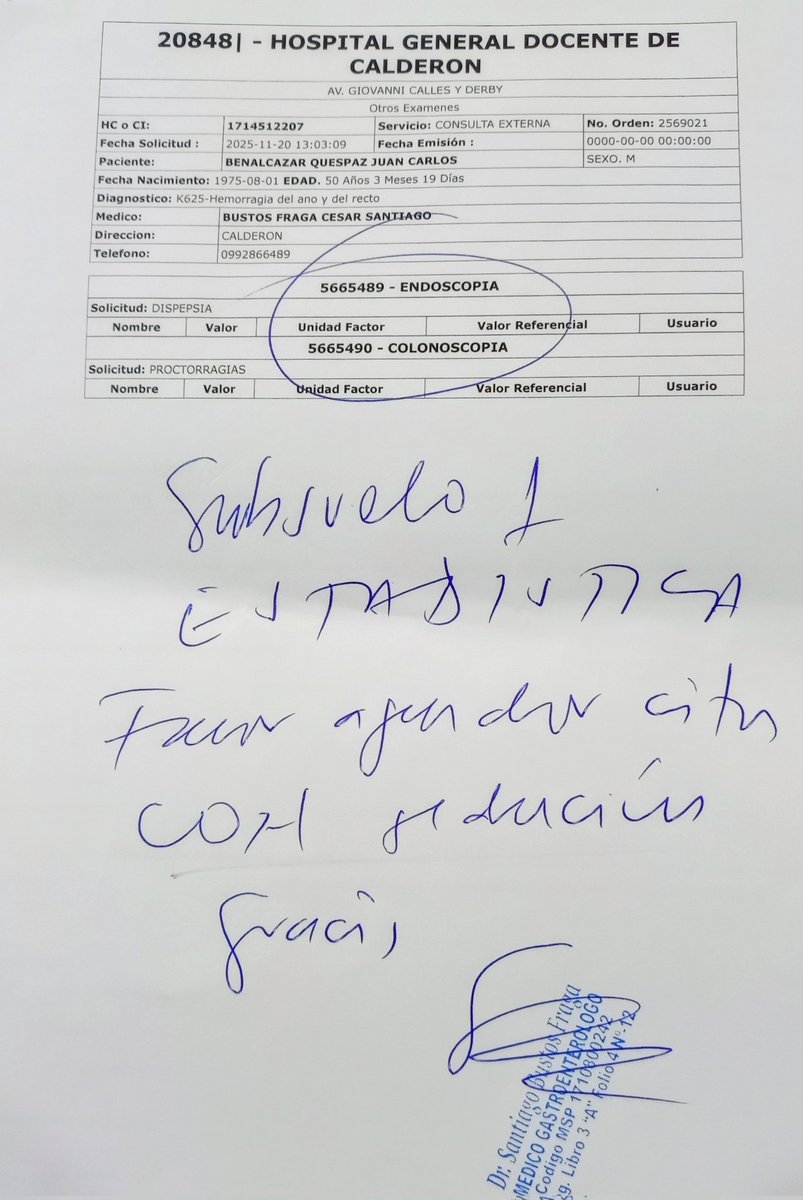 20848| - HOSPITAL GENERAL DOCENTE DE
CALDERON
AV. GIOVANNI CALLES Y DERBY
Otros Examenes
HC o CI: 1714512207 Servicio: CONSULTA EXTERNA No. Orden: 2569021
Fecha Solicitud : 2025-11-20 13:03:09 Fecha Emisión : 0000-00-00 00:00:00
Paciente: BENALCAZAR QUESPAZ JUAN CARLOS SEXO. M
Fecha Nacimiento: 1975-08-01 EDAD. 50 Años 3 Meses 19 Días
Diagnostico: K625-Hemorragia del ano y del recto
Medico: BUSTOS FRAGA CESAR SANTIAGO
Direccion: CALDERON
Telefono: 0992866489
5665489 - ENDOSCOPIA
Solicitud: DISPEPSIA
Nombre Valor Unidad Factor Valor Referencial Usuario
5665490 - COLONOSCOPIA
Solicitud: PROCTORRAGIAS
Nombre Valor Unidad Factor Valor Referencial Usuario
Subsuelo 1
ESTADISTICA
Favor agendar cita
CON sedación
Gracias
Dr. Santiago Bustos Fraga
MEDICO GASTROENTEROLOGO
Codigo MSP 1710800242
Libro 3 "A" Folio 4 Nº 12